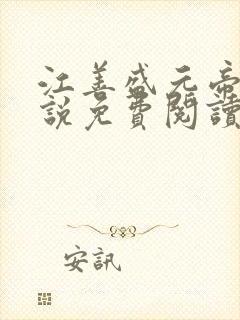 江善盛元帝
說免費閱讀
安訊